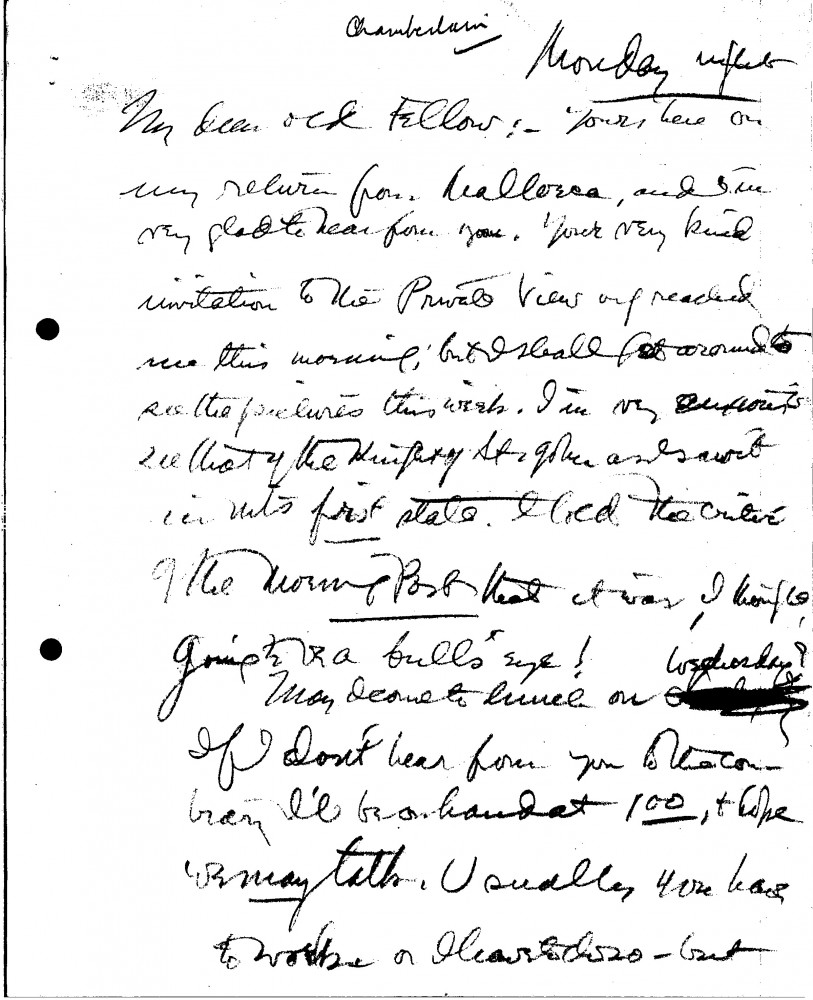 Chamberlain
Monday night
My dear old Fellow:- Yours here on
my return from Mallorca, and I'm
very glad to hear from you. Your very kind
invitation to the Private View only reached
me this morning; but I shall get around to
see the pictures this week. I'm very anxious to
see that of the Knight of St. John as I saw it
in its first state. I told the critic
of the Morning Post that it was, I thought,
going to be a bull's eye!
May I come to lunch on Wednesday?
If I don't hear from you to the con-
trary I'll be on hand at 1 00, & hope
we may talk. Usually you have
to work or I have to do so - but